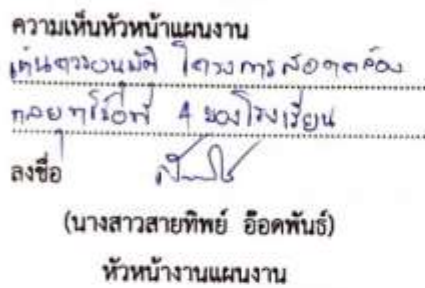 ความเห็นหัวหน้าแผนงาน
เห็นควรอนุมัติ โครงการสอดคล้อง
กลยุทธ์ข้อที่ 4 ของโรงเรียน
ลงชื่อ
(นางสาวสายทิพย์ อ๊อดพันธ์)
หัวหน้างานแผนงาน